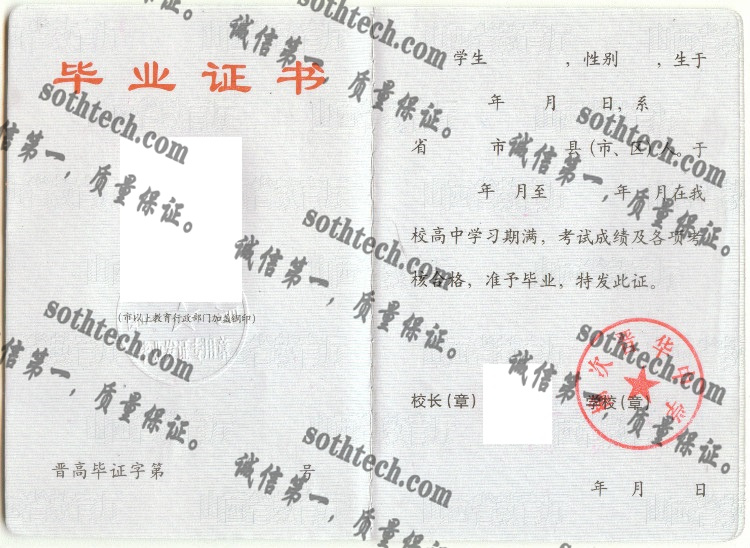 毕业证书
(市以上教育行政部门加盖钢印)
晋高毕证字第 号
学生 ,性别 ,生于
年 月 日,系
省 市 县(市、区)人。于
年 月至 年 月在我
校高中学习期满,考试成绩及各项考
核合格,准予毕业,特发此证。
校长(章) 学校(章)
榆次晋华中学
年 月 日
sothtech.com
诚信第一,质量保证。
sothtech.com
诚信第一,质量保证。
sothtech.com
诚信第一,质量保证。
sothtech.com
诚信第一,质量保证。
sothtech.com
诚信第一,质量保证。
sothtech.com
诚信第一,质量保证。
sothtech.com
诚信第一,质量保证。